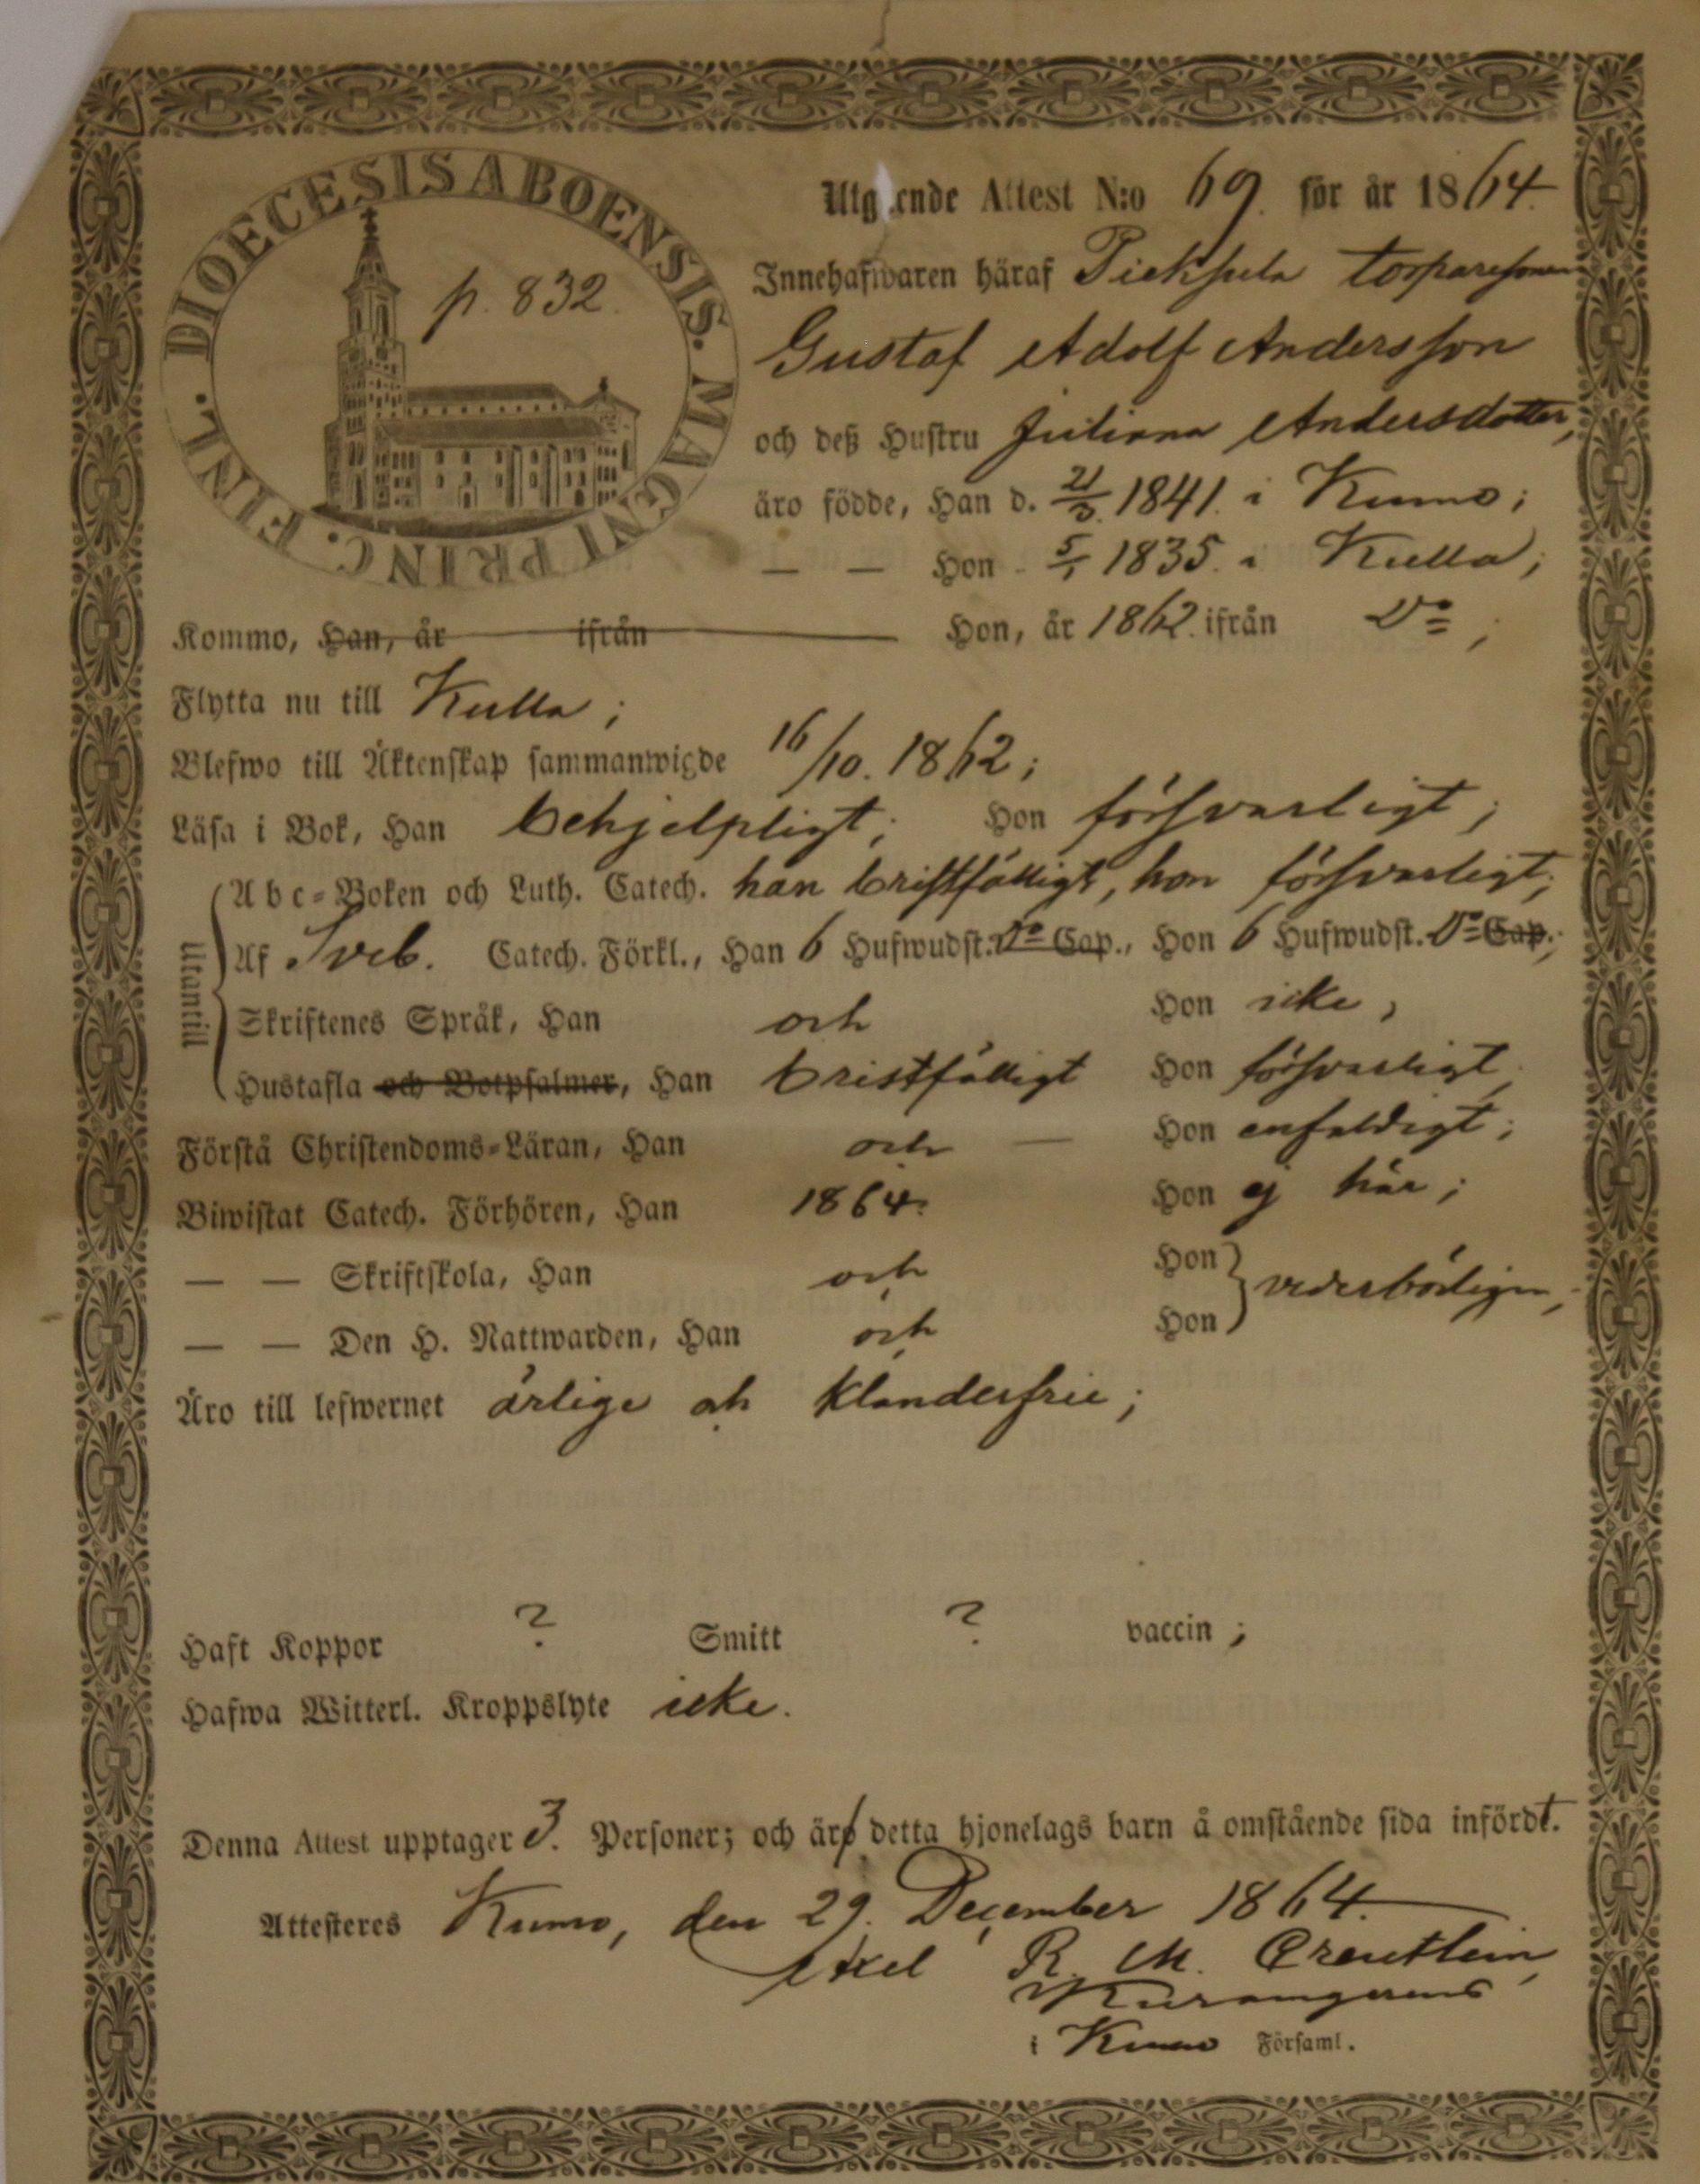 DIOECESIS ABOENSIS. MAGNI PRINC. FINL.
p. 832.
Utg ende Attest N:o 69. för år 1864.
Innehafwaren häraf torparesonen
Gustaf Adolf Andersson
och deß Hustru Juliana Andersdotter,
äro födde, Han d. 21/3. 1841. i Kumo;
— — Hon - 5/1 1835. i Kulla;
Kommo, Han, år ifrån Hon, år 1862. ifrån Do ;
Flytta nu till Kulla ;
Blefwo till Äktenskap sammanwigde 16/10. 1862 ;
Läsa i Bok, Han behjelpligt; Hon försvarligt ;
Utantill
Abc-Boken och Luth. Catech. han bristfälligt, hon försvarligt;
Af Sveb. Catech. Förkl., Han 6 Hufwudst. Do Cap., Hon 6 Hufwudst. Do Cap.;
Skriftenes Språk, Han och Hon icke ,
Hustafla och Botpsalmer, Han bristfälligt Hon försvarligt,
Förstå Christendoms-Läran, Han och — Hon enfaldigt ;
Biwistat Catech. Förhören, Han 1864. Hon ej här ;
— — Skriftskola, Han och Hon
— — Den H. Nattwarden, Han och Hon vederbörligen,
Äro till lefwernet ärlige och klanderfrie ;
Haft Koppor ? Smitt ? vaccin ;
Hafwa Witterl. Kroppslyte icke.
Denna Attest upptager 3. Personer; och äro detta hjonelags barn å omstående sida infördt.
Attesteres Kumo, den 29. December 1864.
Axel R. M. Creutlein,
i Kumo Församl.